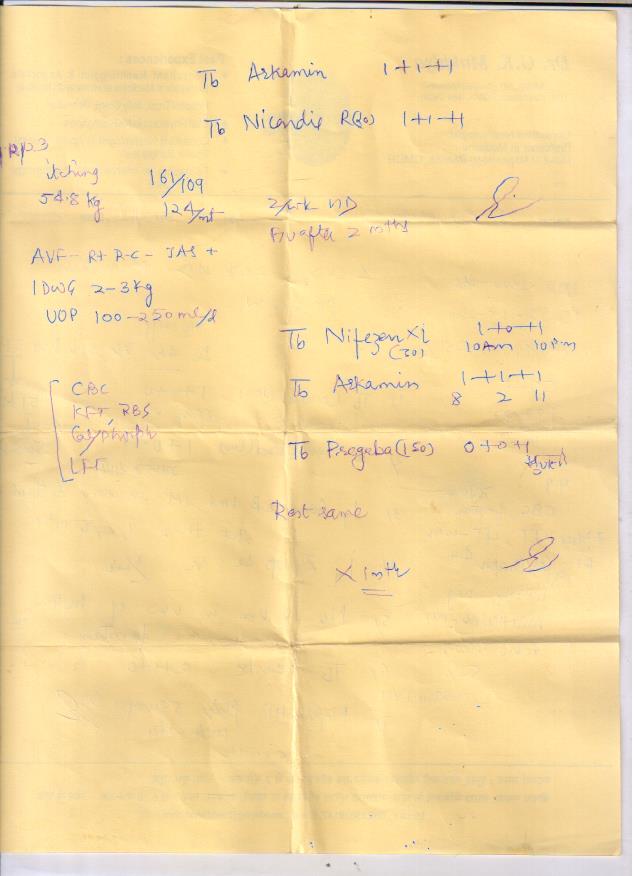 Tb Arkamin 1+1+1
Tb Nicardia R(30) 1+1+1
itching 161/109
54.8 kg 124/mt
2/wk HD
F/U after 2 mths
AVF - Rt R-C - JAS +
IDWG 2-3 kg
UOP 100-250 ml/d
Tb Nifezen XL 1+0+1
(30) 10 Am 10 Pm
Tb Arkamin 1+1+1
8 2 11
CBC
KFT, RBS
Ca/phosph
LFT
Tb Pregeba (150) 0+0+1
Rest same
X 1 mth